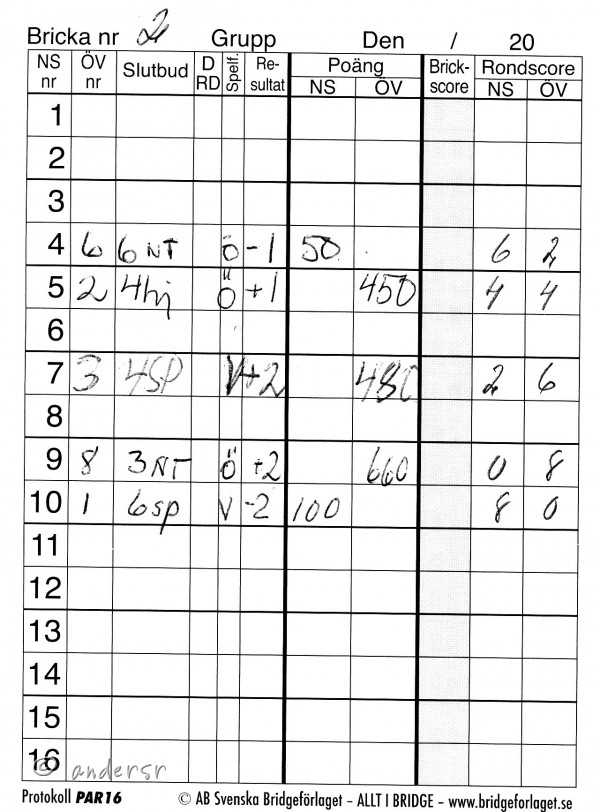 Bricka nr 2 Grupp Den / 20
NS nr ÖV nr Slutbud D RD Spelf. Re-sultat Poäng NS ÖV Brick-score Rondscore NS ÖV
1
2
3
4 6 6 NT Ö -1 50 6 2
5 2 4hj Ö +1 450 4 4
6
7 3 4SP V +2 480 2 6
8
9 8 3NT Ö +2 660 0 8
10 1 6sp V -2 100 8 0
11
12
13
14
15
16
© andersr
Protokoll PAR16 © AB Svenska Bridgeförlaget – ALLT I BRIDGE – www.bridgeforlaget.se